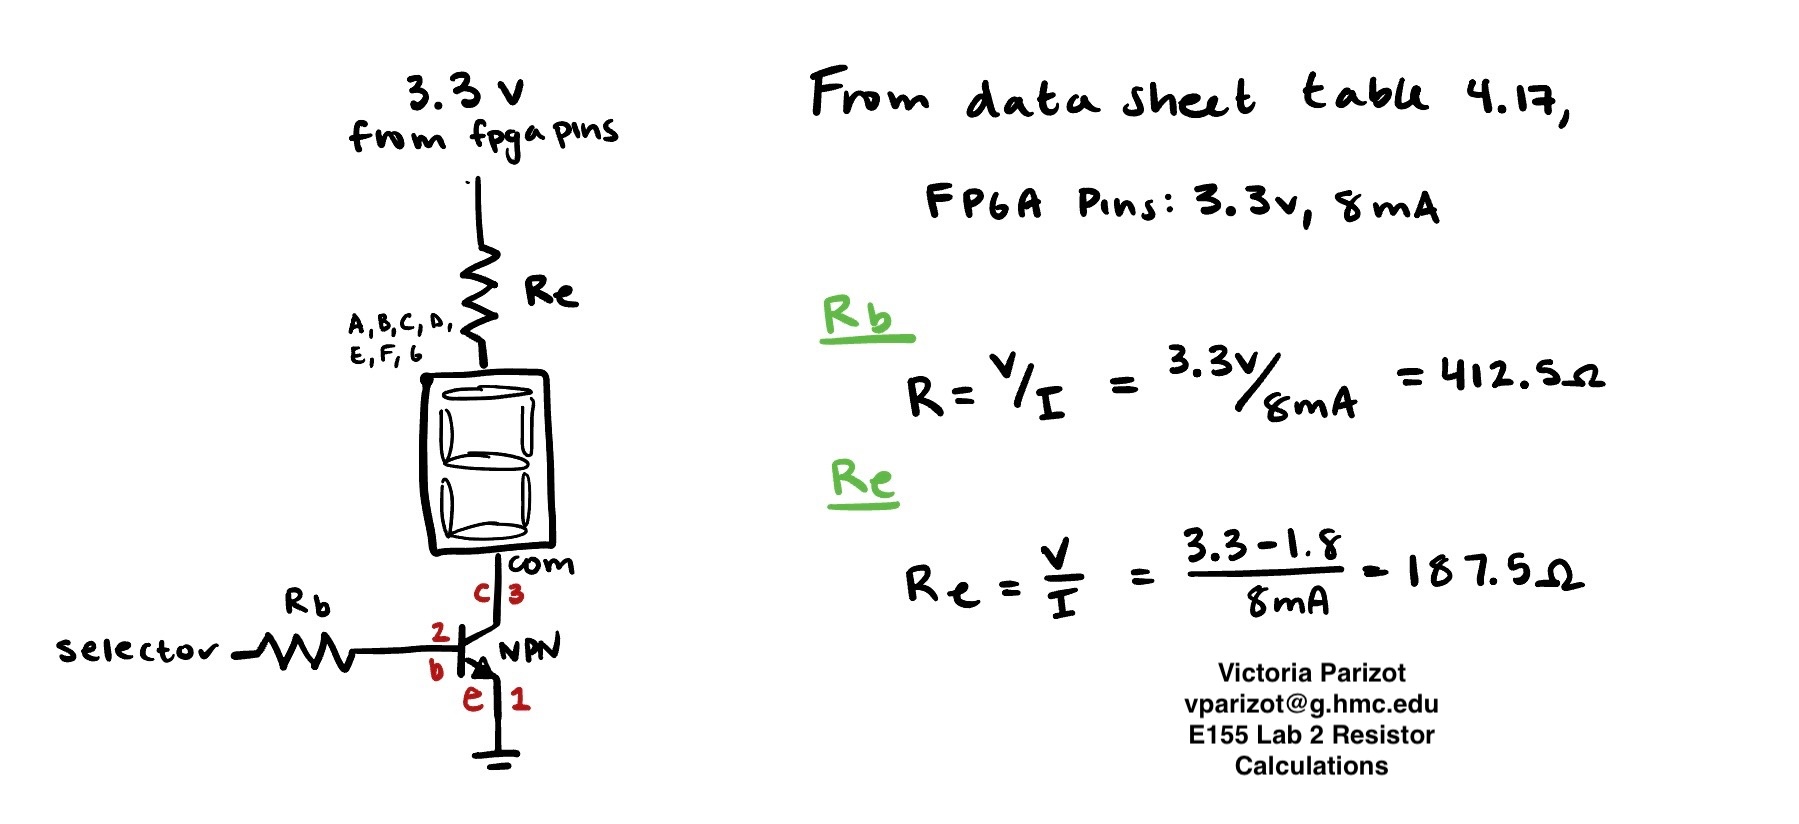 3.3 V
from fpga pins
Re
A, B, C, D,
E, F, G
com
c 3
Rb
selector
2
b
NPN
e 1
From data sheet table 4.17,
FPGA Pins: 3.3v, 8mA
Rb
R = V/I = 3.3v/8mA = 412.5Ω
Re
Re = V/I = 3.3-1.8/8mA = 187.5Ω
Victoria Parizot
vparizot@g.hmc.edu
E155 Lab 2 Resistor
Calculations